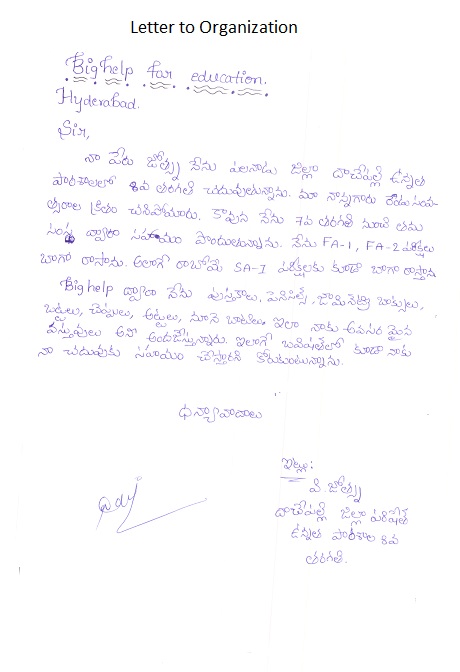 Letter to Organization
Big help for education.
Hyderabad.
Sir,
నా పేరు జోత్స్న నేను పలనాడు జిల్లా దాచేపల్లి ఉన్నత
పాఠశాలలో 8వ తరగతి చదువుతున్నాను. మా నాన్నగారు
క్రితం చనిపోయారు. కావున నేను 7వ తరగతి నుంచి తమ
సంస్థ ద్వారా సహాయం పొందుతున్నాను. నేను FA-1, FA-2 పరీక్షలు
బాగా రాసాను. అలాగే రాబోయే SA-I పరీక్షలకు కూడా బాగా రాస్తాను
Big help ద్వారా నేను పుస్తకాలు, పెన్సిల్స్, బాక్సులు,
బట్టలు, చెప్పులు, అట్టలు, నూనె బాటిలు ఇలా నాకు అవసరమైన
వస్తువులు అందజేస్తున్నారు. ఇలాగే కూడా నాకు
నా చదువుకు సహాయం చేస్తారని కోరుకుంటున్నాను.
ధన్యావాదాలు
ఇట్లు:
వి. జోత్స్న
దాచేపల్లి జిల్లా పరిషత్
ఉన్నత పాఠశాల 8వ
తరగతి.